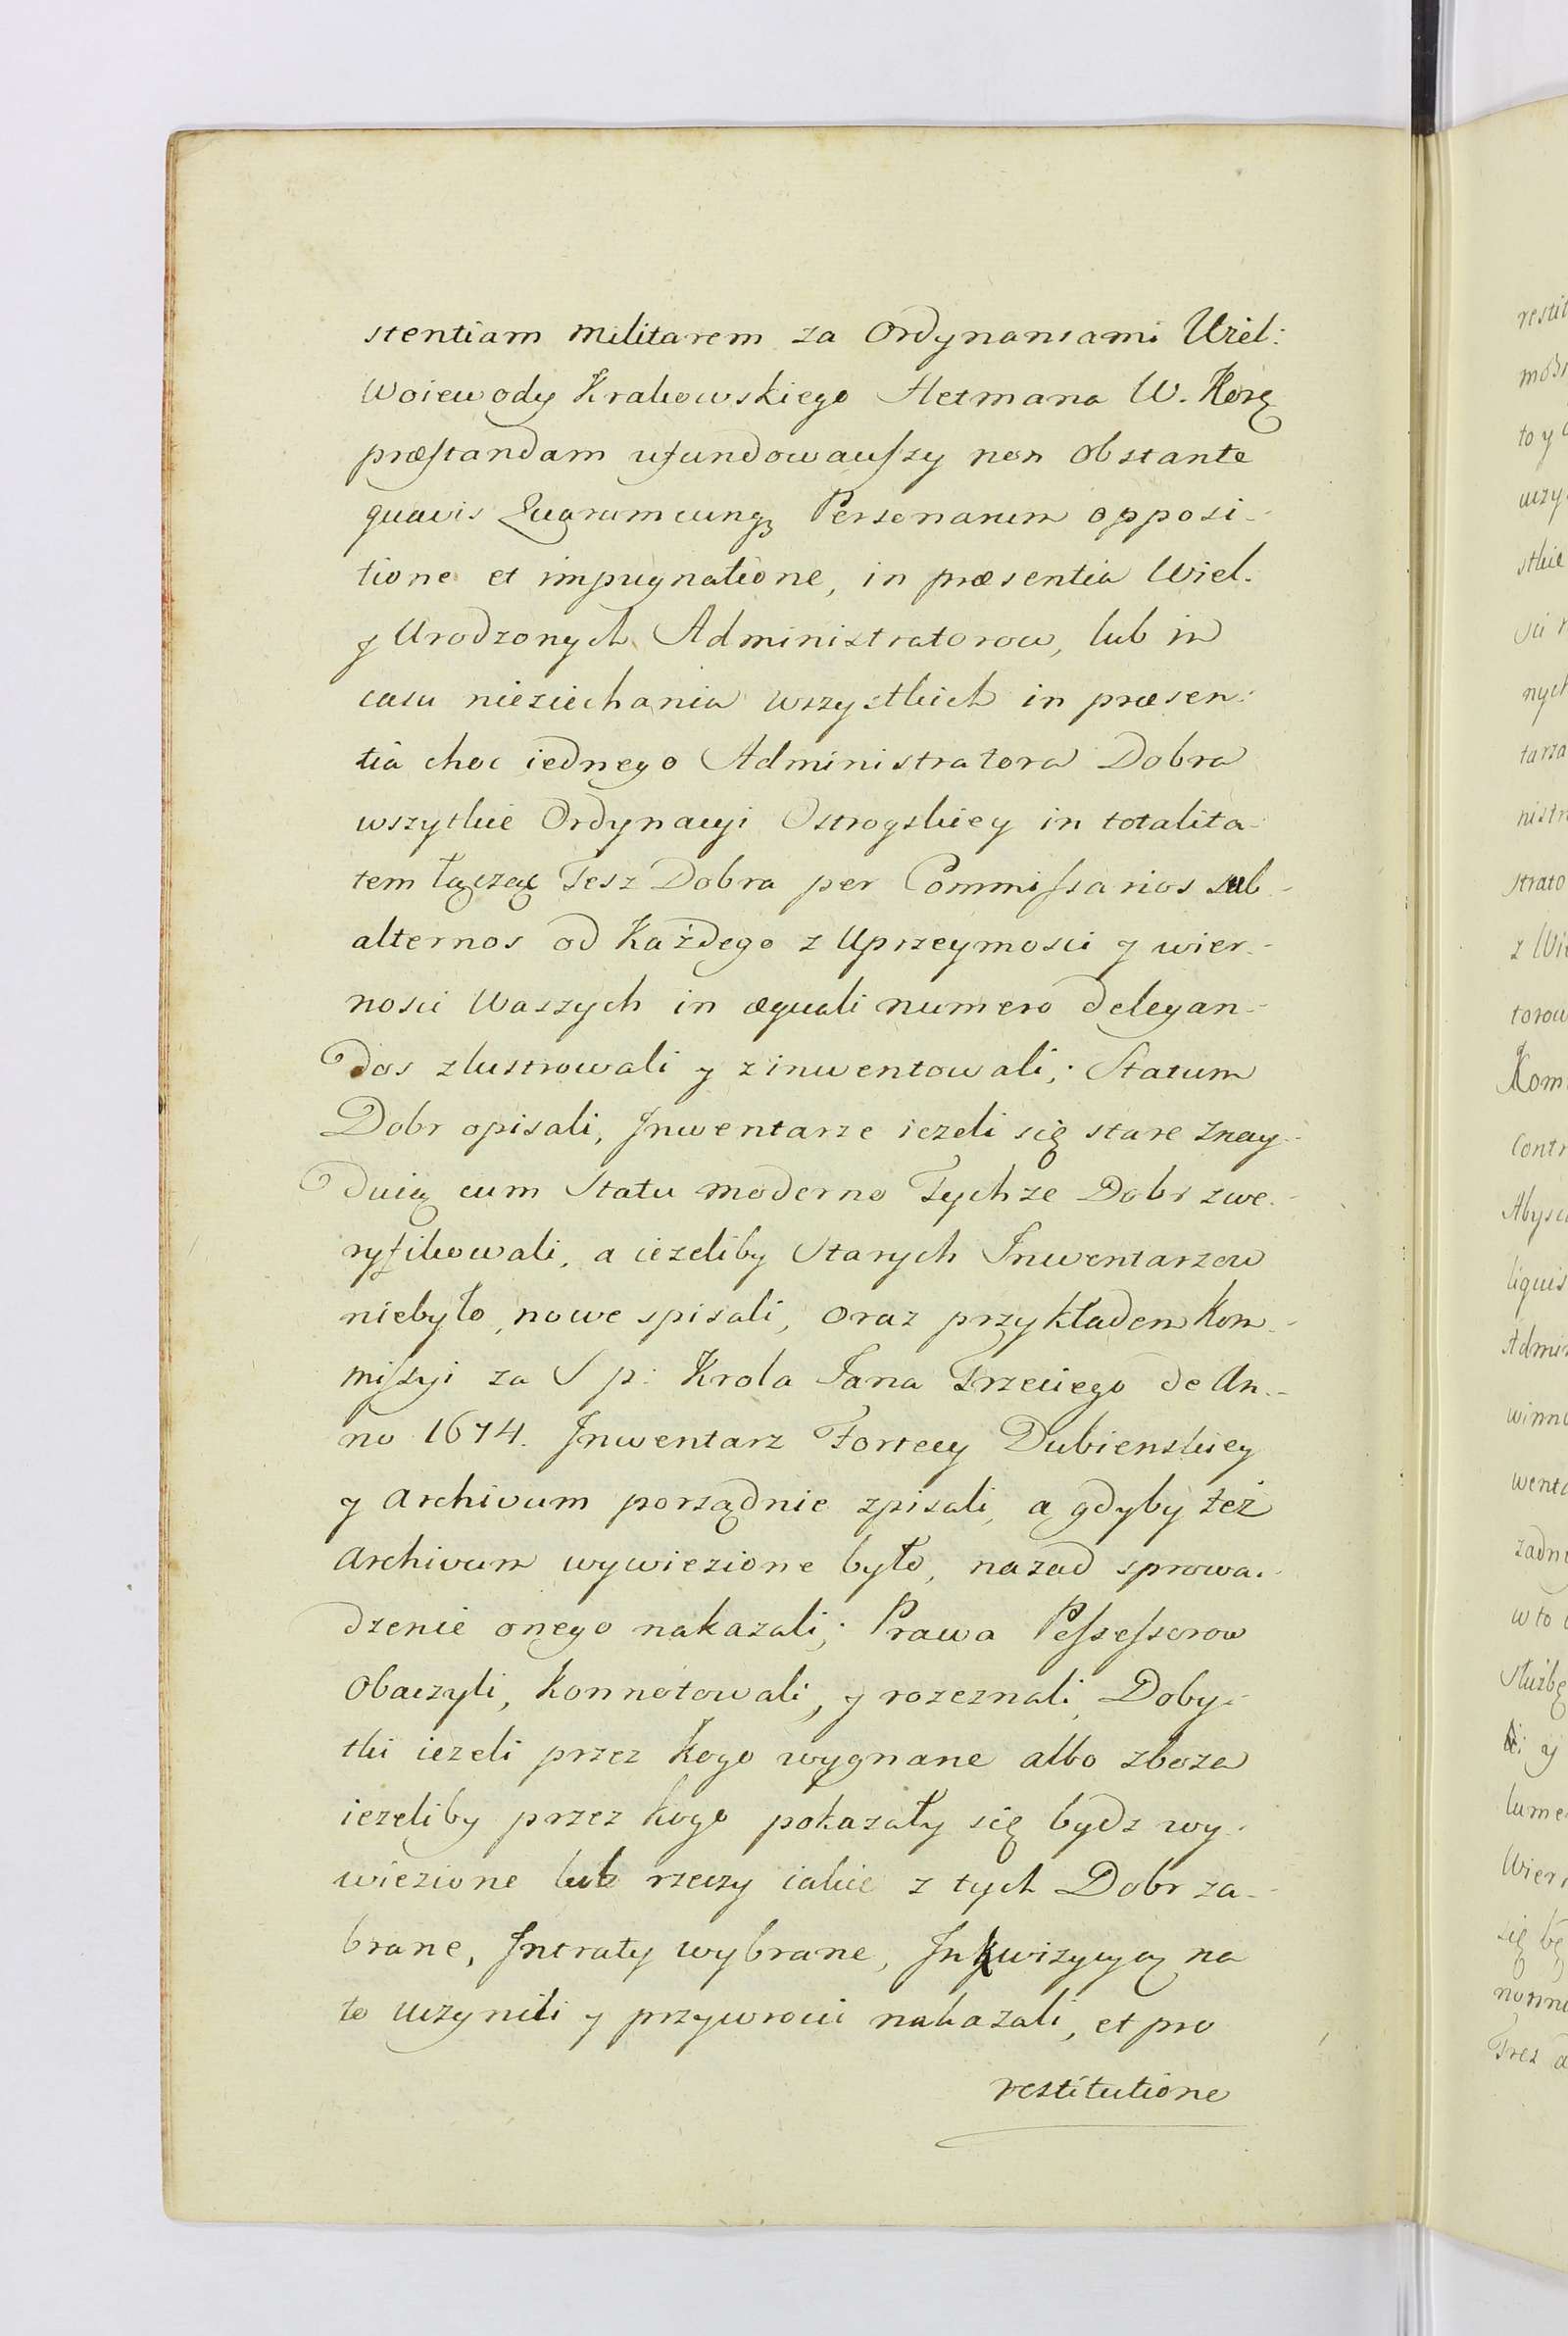 stentiam militarem za Ordynansami Wiel:
Woiewody Krakowskiego Hetmana W. Korę
præſtandam ufundowauſzy non obstante
quavis Quarumcunqꝫ Personarum opposi-
tione et impugnatione, in præsentia Wiel.
y Urodzonych Administratorow, lub in
casu nieziechania wszystkich in præsen:
tia choc iednego Administratora Dobra
wszytkie Ordynacyi Ostrogskiey in totalita-
tem łącząc Tesz Dobra per Commiſsarios sub-
alternos od Każdego z Uprzeymosci y wier-
nosci Waszych in æquali numero delegan-
dos zlustrowali y zinwentowali; Statum
Dobr opisali, Inwentarze iezeli się stare znay-
duią cum Statu moderno Tychze Dobr zwe-
ryfikowali, a iezeliby Starych Inwentarzow
niebyło, nowe spisali, oraz przykładem Kom-
miſsyi za S p: Krola Jana Trzeciego de An-
no 1674. Inwentarz Fortecy Dubienskiey
y Archivum porządnie spisali, a gdyby też
Archivum wywiezione było, nazad sprowa-
dzenie onego nakazali; Prawa Poſseſsorow
obaczyli, konnotowali, y rozeznali, Doby-
tki iezeli przez kogo wygnane albo zboza
iezeliby przez kogo pokazały się bydz wy-
wiezione lub rzeczy iakie z tych Dobr za-
brane, Intraty wybrane, Inkwizycyą na
to uczynili y przywrocic nakazali, et pro
restitutione
restit
to y
uczy
stkie
nych
tarza
nistr
strato
z Wie
torow
Kom
Contr
Abysc
liquis
Admin
winn
went
zadn
w to
Służbę
y
lume
Wier
się